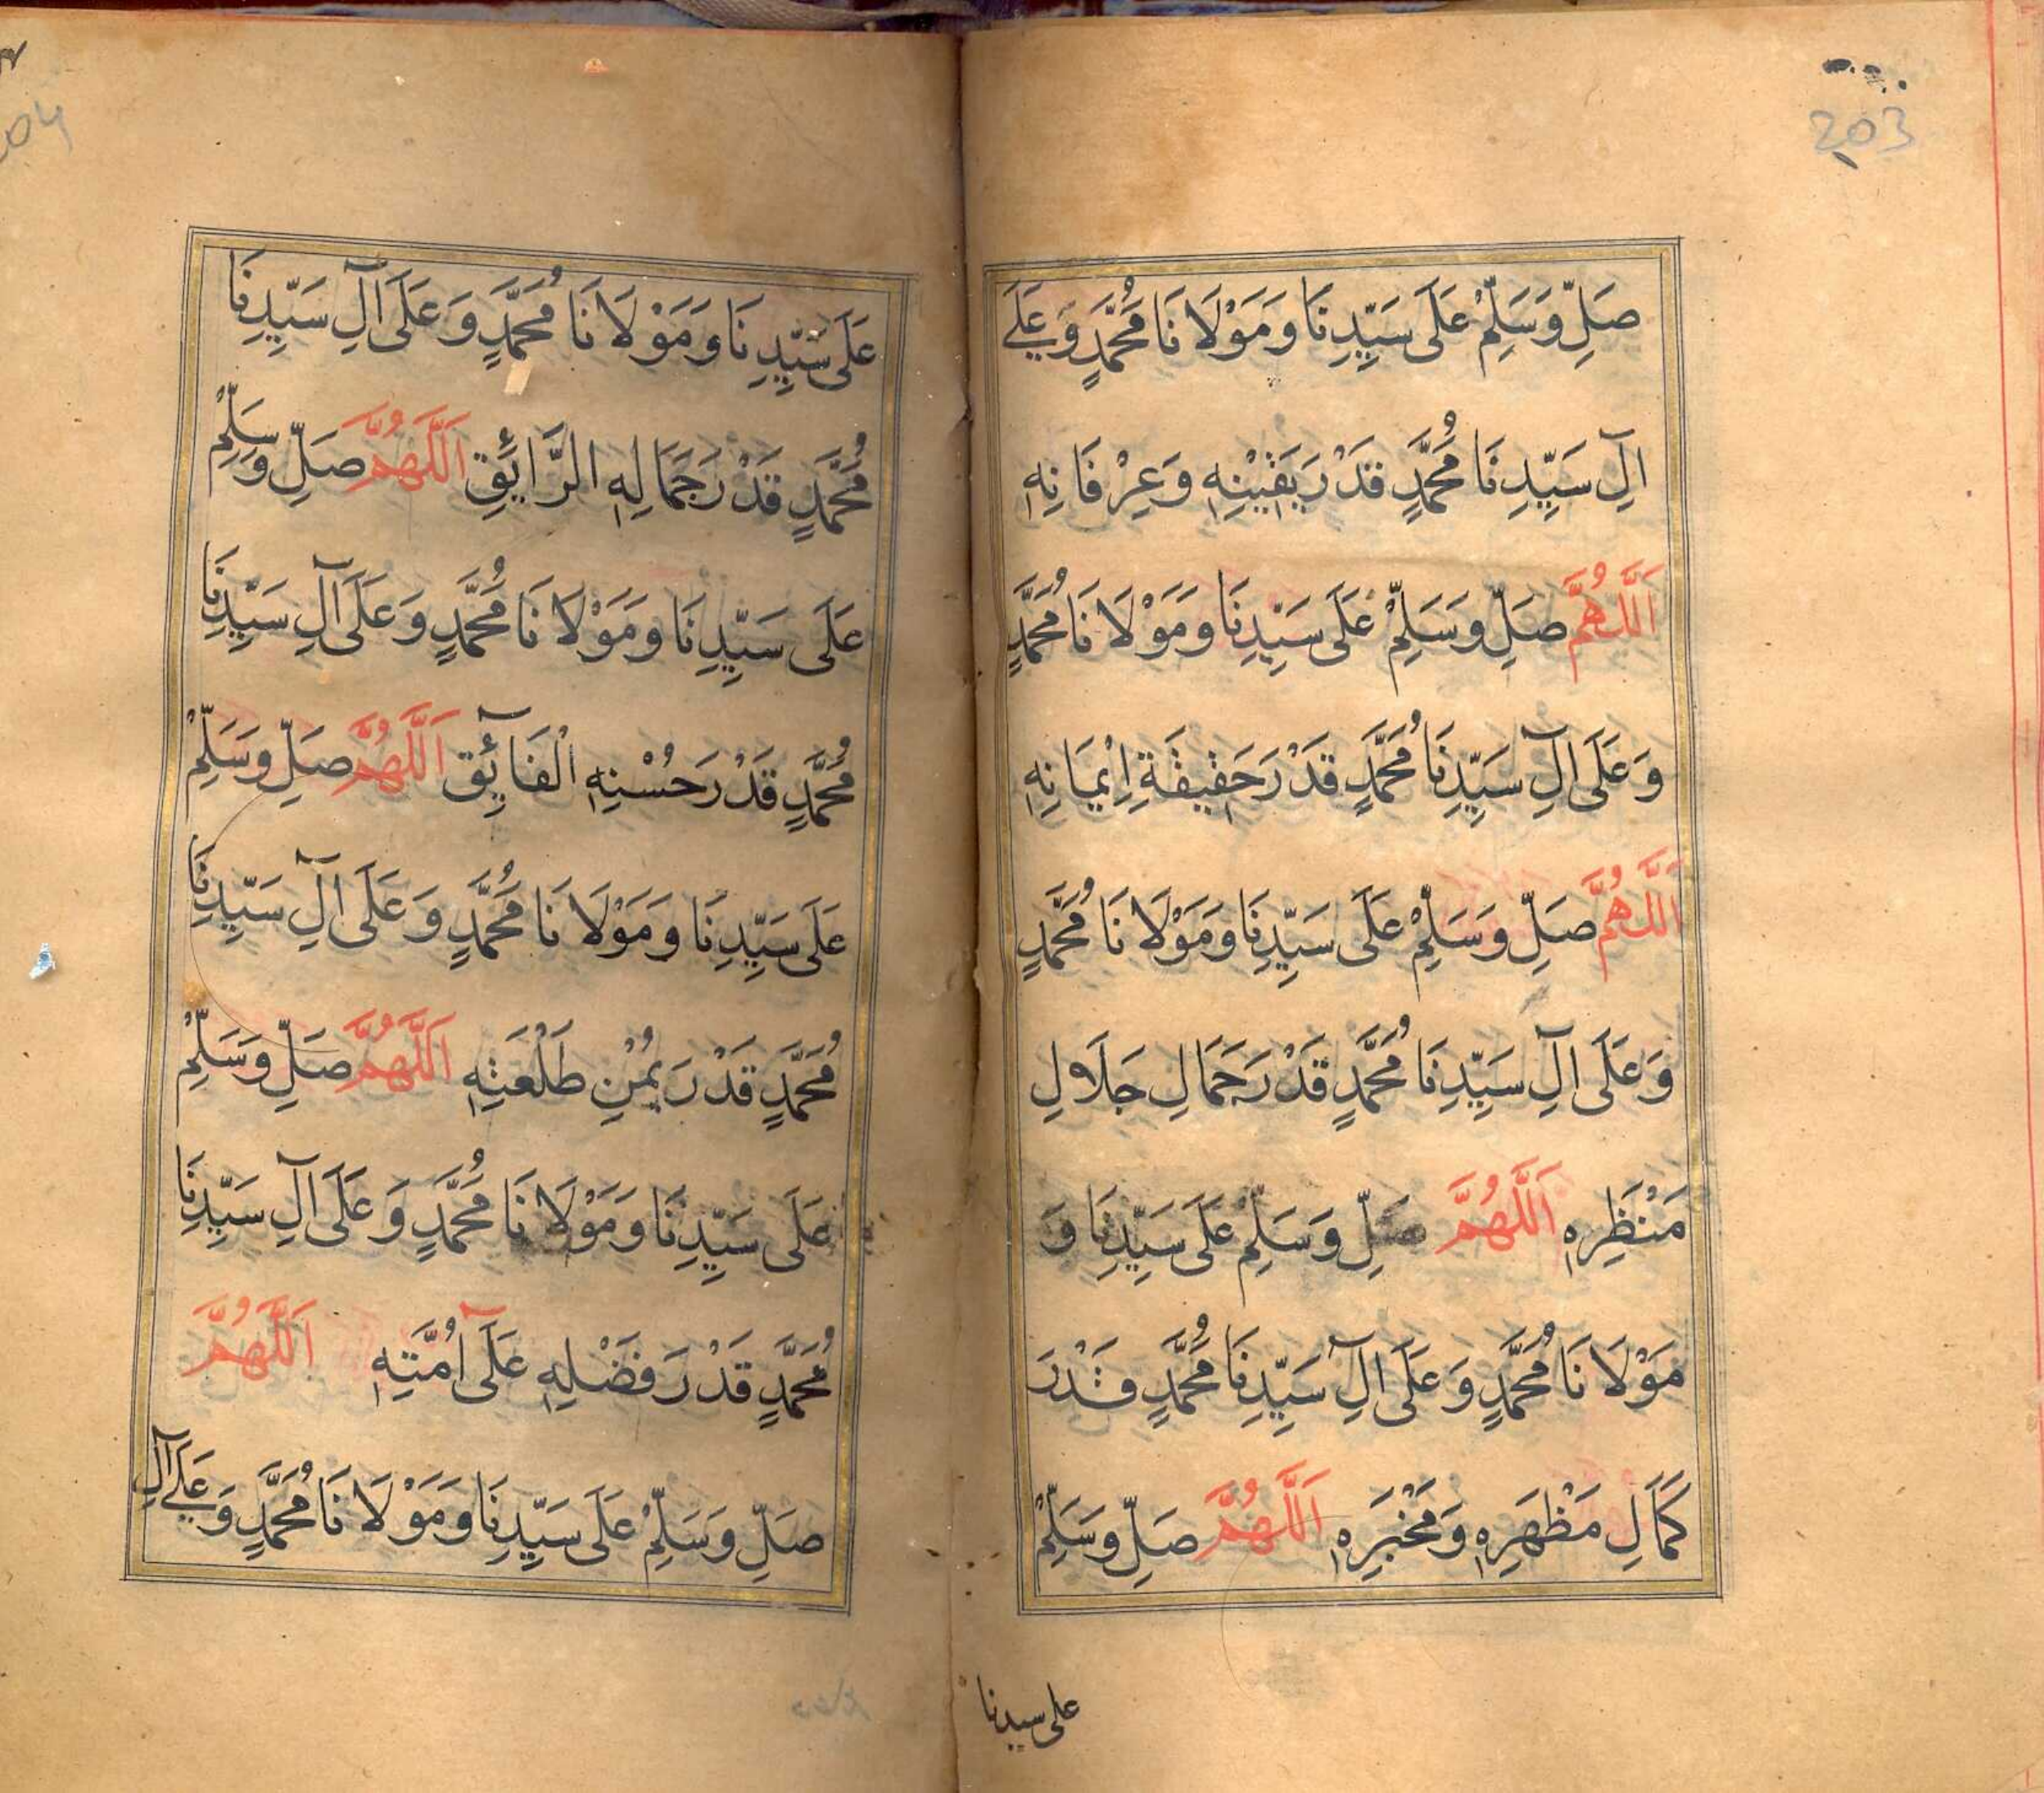 203
صَلِّ وَسَلِّمْ عَلَى سَيِّدِنَا وَمَوْلَانَا مُحَمَّدٍ وَعَلَى
اٰلِ سَيِّدِنَا مُحَمَّدٍ قَدْرَ يَقِيْنِهٖ وَعِرْفَانِهٖ
اَللّٰهُمَّ صَلِّ وَسَلِّمْ عَلَى سَيِّدِنَا وَمَوْلَانَا مُحَمَّدٍ
وَعَلَى اٰلِ سَيِّدِنَا مُحَمَّدٍ قَدْرَ حَقِيْقَةِ اِيْمَانِهٖ
اَللّٰهُمَّ صَلِّ وَسَلِّمْ عَلَى سَيِّدِنَا وَمَوْلَانَا مُحَمَّدٍ
وَعَلَى اٰلِ سَيِّدِنَا مُحَمَّدٍ قَدْرَ جَمَالِ جَلَالِ
مَنْظَرِهٖ اَللّٰهُمَّ صَلِّ وَسَلِّمْ عَلَى سَيِّدِنَا وَ
مَوْلَانَا مُحَمَّدٍ وَعَلَى اٰلِ سَيِّدِنَا مُحَمَّدٍ قَدْرَ
كَمَالِ مَظْهَرِهٖ وَمَخْبَرِهٖ اَللّٰهُمَّ صَلِّ وَسَلِّمْ
على سيدنا
عَلَى سَيِّدِنَا وَمَوْلَانَا مُحَمَّدٍ وَعَلَى اٰلِ سَيِّدِنَا
مُحَمَّدٍ قَدْرَ جَمَالِهِ الرَّائِقِ اَللّٰهُمَّ صَلِّ وَسَلِّمْ
عَلَى سَيِّدِنَا وَمَوْلَانَا مُحَمَّدٍ وَعَلَى اٰلِ سَيِّدِنَا
مُحَمَّدٍ قَدْرَ حُسْنِهِ الْفَائِقِ اَللّٰهُمَّ صَلِّ وَسَلِّمْ
عَلَى سَيِّدِنَا وَمَوْلَانَا مُحَمَّدٍ وَعَلَى اٰلِ سَيِّدِنَا
مُحَمَّدٍ قَدْرَ يُمْنِ طَلْعَتِهٖ اَللّٰهُمَّ صَلِّ وَسَلِّمْ
عَلَى سَيِّدِنَا وَمَوْلَانَا مُحَمَّدٍ وَعَلَى اٰلِ سَيِّدِنَا
مُحَمَّدٍ قَدْرَ فَضْلِهٖ عَلٰى اُمَّتِهٖ اَللّٰهُمَّ
صَلِّ وَسَلِّمْ عَلَى سَيِّدِنَا وَمَوْلَانَا مُحَمَّدٍ وَعَلَى اٰلِ